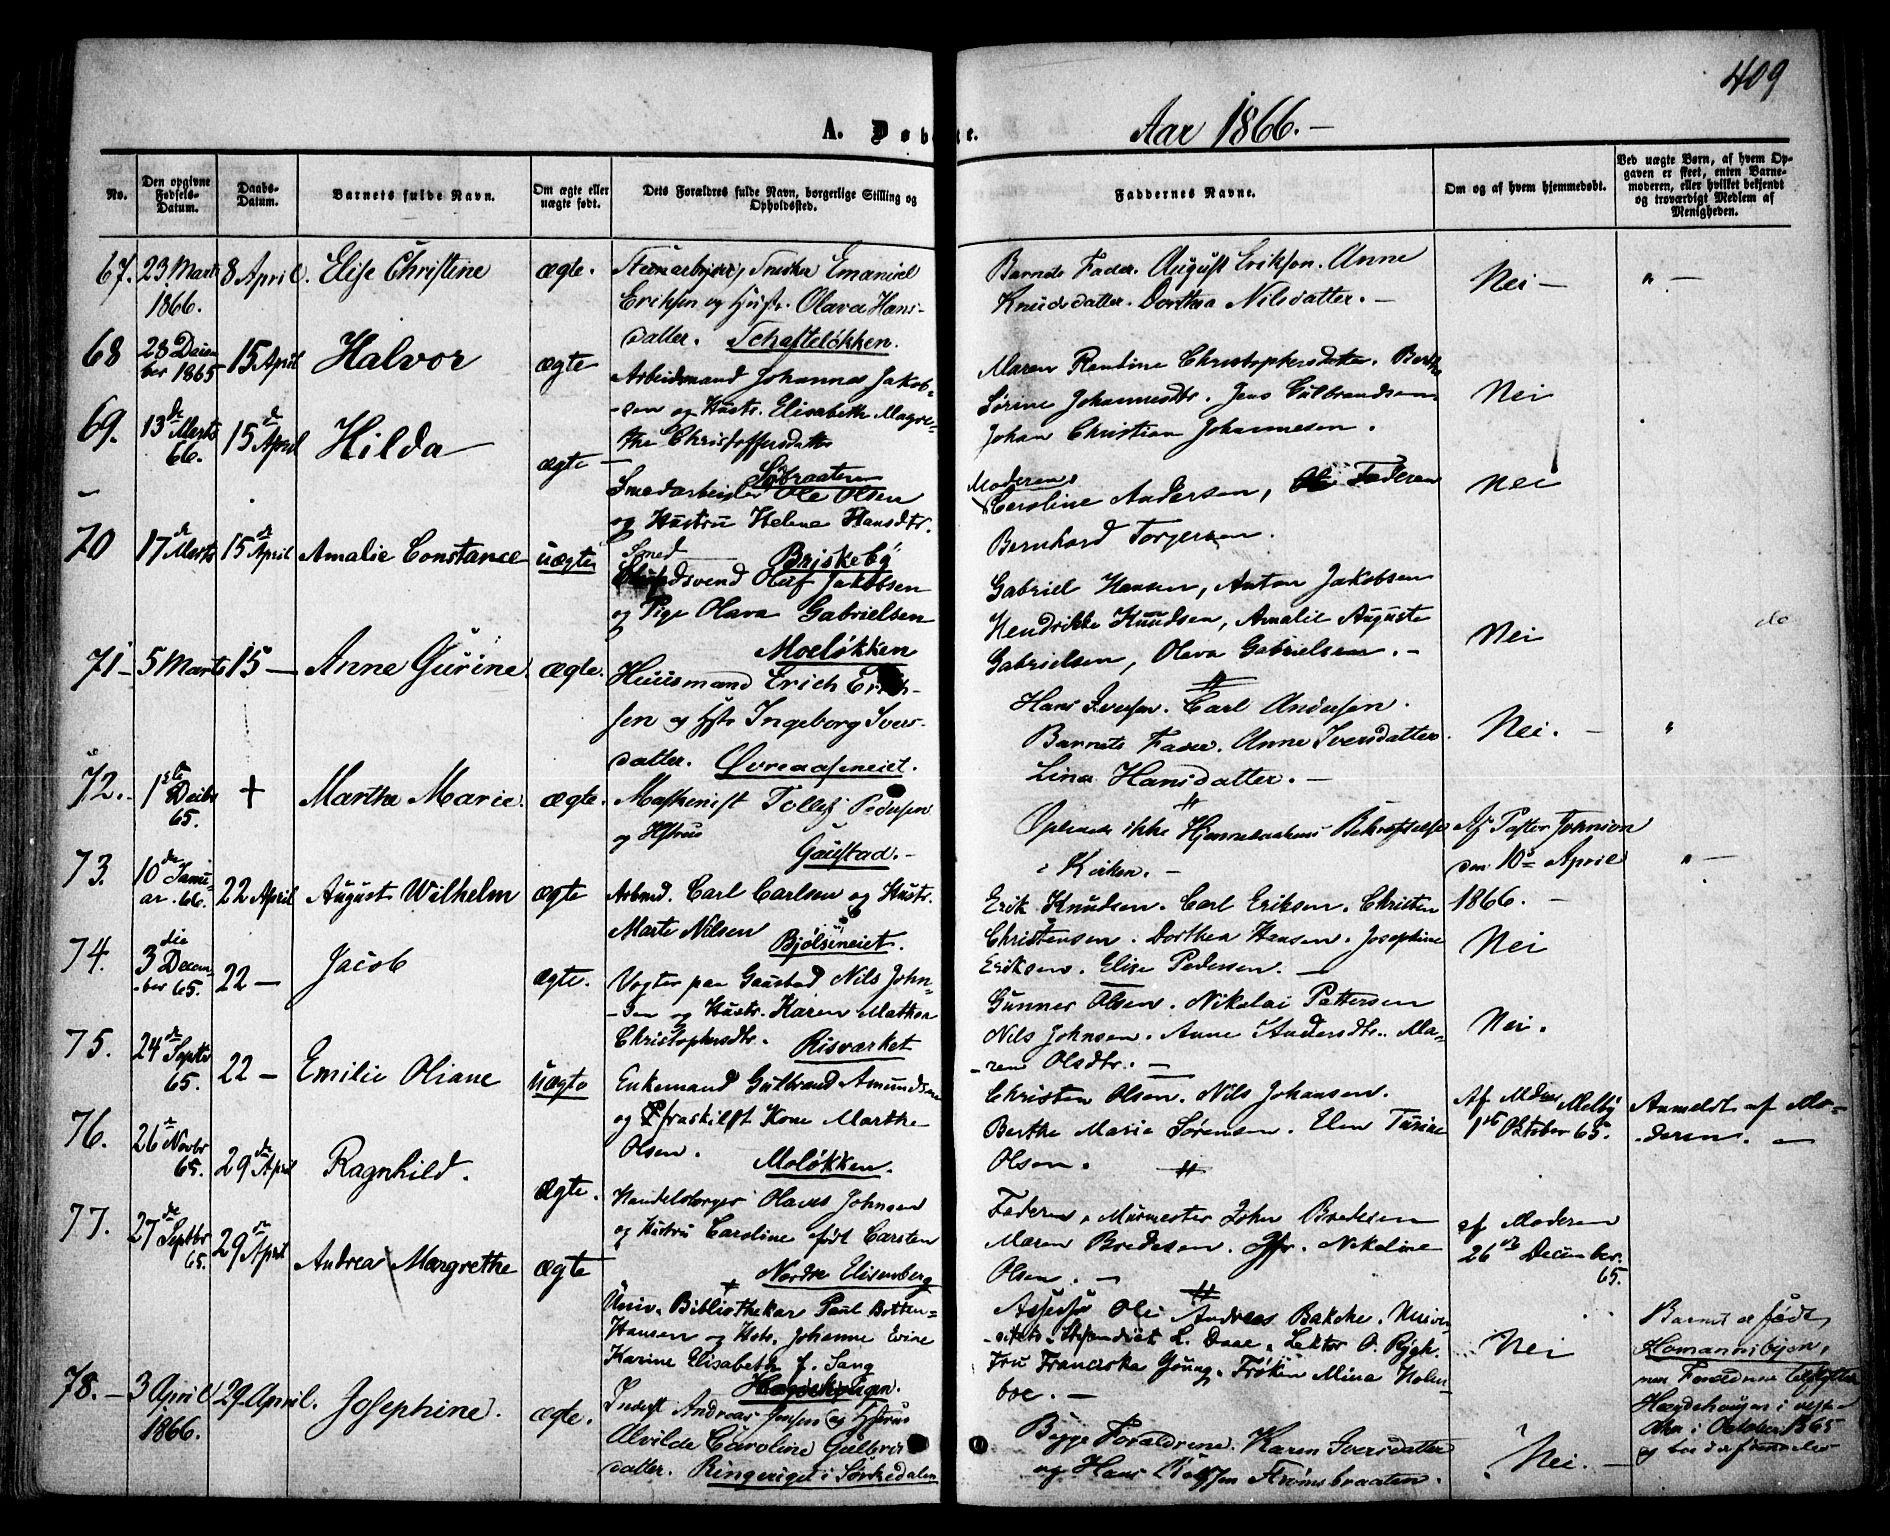 409
A. Døbte. Aar 1866.-
No.
Den opgivne Fødsels-Datum.
Daabs-Datum.
Barnets fulde Navn.
Om ægte eller uægte født.
Dets Forældres fulde Navn, borgerlige Stilling og Opholdssted.
Faddernes Navne.
Om og af hvem hjemmedøbt.
Ved uægte Børn, af hvem Opgaven er skeet, enten Barnemoderen, eller hvilket bekjendt og troværdigt Medlem af Menigheden.
67. 23 Marts 1866. 8 April. Elise Christine ægte.
Snedker Emanuel
Eriksen og Hustr. Olava Hans-
datter. Schafteløkken.
Barnets Fader. August Eriksen. Anne
Knudsdatter. Dorthea Nilsdatter. -
Nei - " -
68 28 Decem ber 1865 15 April Halvor ægte
Arbeidsmand Johannes Jakob-
-sen og Hustr. Elisabeth Magre-
the Christoffersdatter
Søbraaten
Maren Randine Christophersdatter. Berthe
Sørine Johannesdtr. Jens Gulbrandsen
Johan Christian Johannesen.
Nei
69. 13de Marts 66. 15de April Hilda ægte -
Smedarbeider Ole Olsen
og Hustru Helene Hansdtr.
Briskeby
Moderen,
Caroline Andersen, Faderen
Bernhard Torgersen.
Nei
70 17de Marts 15de April Amalie Constance uægte
Smed
svend Oluf Jakobsen
og Pige Olava Gabrielsen
Moeløkken
Gabriel Hansen, Anton Jakobsen
Hendrikke Knudsen, Amalie Auguste
Gabrielsen, Olava Gabrielsen. -
Nei
do
71- 5 Marts 15 - Anne Gurine ægte.
Huusmand Erich Erich-
sen og Hstr Ingeborg Ivers-
datter. Øvreaaseneiet.
Hans Iversen. Carl Andersen.
Barnets Fader. Anne Iversdatter.
Lina Hansdatter. -
Nei. - "
72. 1ste Decbr 65. + Martha Marie. ægte.
Maskinist Tollef Pedersen
og Hstru
Gaustad. -
Oplæstes ikke Hjemmedaabens Bekræftelse
i Kirken. -
Af Pastor Johnson
den 10de April
1866. -
" -
73. 10de Janu- ar. 66. 22 April August Wilhelm ægte
Arbmd. Carl Carlsen og Hustr.
Marte Nilsen
Bjølseneiet.
Erik Knudsen. Carl Eriksen. Christen
Christensen. Dorthea Hansen. Josephine
Eriksen. Elise Pedersen. -
Nei
74. 3die Decem- -ber 65. 22 - Jacob ægte.
Vogter paa Gaustad Nils John-
-sen og Hustr. Karen Mathea
Christophersdtr. Risværket
Gunner Olsen. Nikolai Pettersen
Nils Johnsen. Anne Andersdtr. Ma-
-ren Olsdtr. -
Nei.
75. 24de Septbr 65. 22 - Emilie Oliane uægte
Enkemand Gulbrand Amundsen
og fraskilt Kone Marthe
Olsen. Moløkken.
Christen Olsen. Nils Johansen.
Berthe Marie Sørensen. Elen Turine
Olsen.
Af Melby
1ste Oktober 65.
Anmeldt af Mo-
-deren. -
76. 26de Novbr 65. 29de April Ragnhild. ægte.
Handelsborger Olaves Johnsen
og Hustru Caroline født Carsten
Nordre Elisenberg
Faderen, Murmester John Bredesen
Maren Bredesen. Jfr. Nikoline
Olsen. -
af Moderen
26de December.
65.
77. 27de Septbr 65. 29de April Andrea Margrethe ægte
Univ. Bibliothekar Paul Botten-
Hansen og Hstr. Johanne Evine
Karine Elisabeth f. Sang
Hægdehaugen.
Assessor Ole Andreas Bakke, Univer-
-sitets-Stipendiat L. Daae, Lektor O. Rygh.
Fru Franciska Young, Frøken Mina Holm-
boe. -
Nei
Barnet er født i
Homannsbyen,
men Forældrene tilflyttede
Hægdehaugen i
i October 1865
og boe der
78. - 3 April 1866. 29 April. Josephine. ægte.
Inderst Andreas Jensen og Hstrus
Alvilde Caroline Gulbr
datter. Ringeriget i Sørkedalen
Begge Forældrene. Karen Iversdatter
og Hans Strømsbraaten.
Nei. -